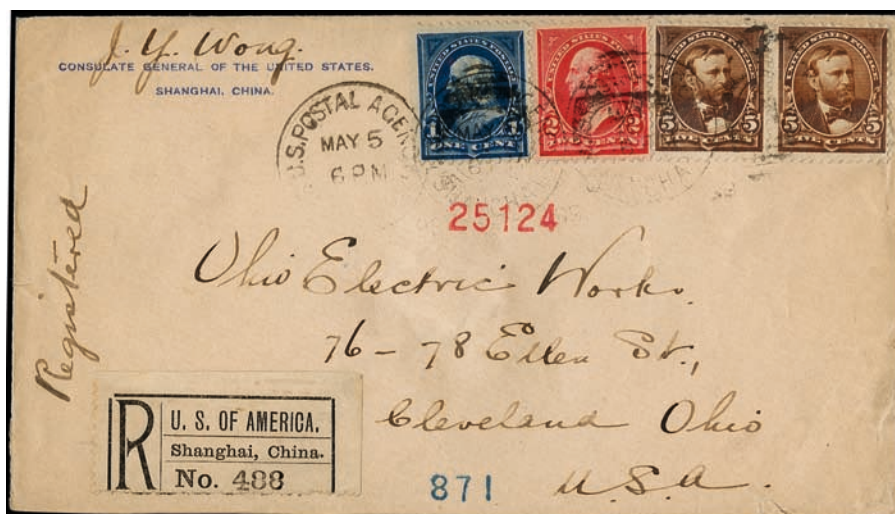 J. Y. Wong.
CONSULATE GENERAL OF THE UNITED STATES.
SHANGHAI, CHINA.
U.S. POSTAL AGENCY
MAY 5
6 PM
1 ONE CENT 1
2 TWO CENTS 2
5 FIVE CENTS 5
5 FIVE CENTS 5
25124
Registered
Ohio Electric Works.
76 - 78 Ellen St.,
Cleveland Ohio
U.S.A.
R
U. S. OF AMERICA.
Shanghai, China.
No. 488
871